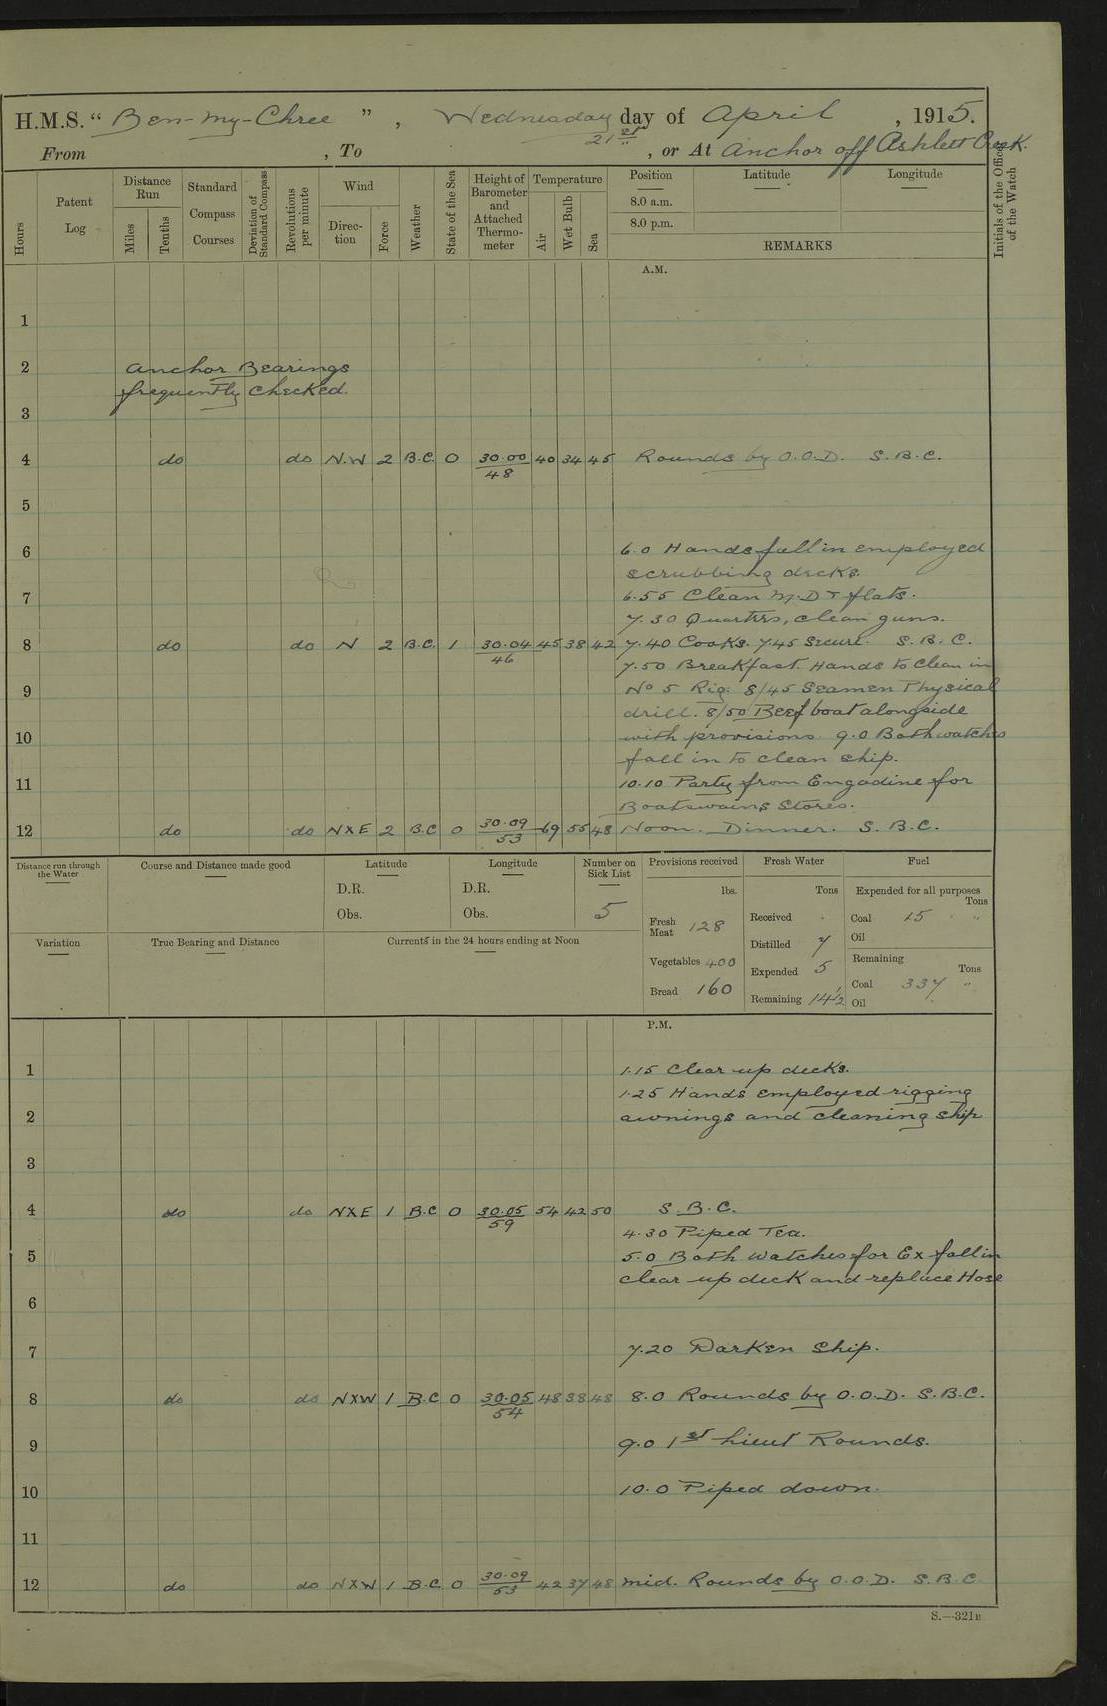 H.M.S. "Ben-my-Chree", Wednesday day of April, 1915.
21st
From , To , or At Anchor off Ashlett Creek.
Hours
Patent Log
Distance Run
Miles
Tenths
Standard Compass Courses
Deviation of Standard Compass
Revolutions per minute
Wind
Direction
Force
Weather
State of the Sea
Height of Barometer and Attached Thermometer
Temperature
Air
Wet Bulb
Sea
Position
Latitude
Longitude
8.0 a.m.
8.0 p.m.
REMARKS
Initials of the Officer of the Watch
A.M.
1
2 Anchor Bearings
frequently checked.
3
4 do do N.W 2 B.C. 0 30.00 40 34 45 Rounds by O.O.D. S.B.C.
48
5
6 6.0 Hands fall in employed
scrubbing decks.
7 6.55 Clean M.D & flats.
7.30 Quarters, clean guns.
8 do do N 2 B.C. 1 30.04 45 38 42 7.40 Cooks. 7.45 Secure. S.B.C.
46
7.50 Breakfast. Hands to clean in
9 No 5 Rig. 8/45 Seamen Physical
drill. 8/50 Beef boat alongside
10 with provisions 9.0 Both watches
fall in to clean ship.
11 10.10 Party from Engadine for
Boatswains Stores.
12 do do NXE 2 B.C 0 30.09 69 55 48 Noon. Dinner. S.B.C.
53
Distance run through the Water
Course and Distance made good
Latitude
Longitude
Number on Sick List
Provisions received
Fresh Water
Fuel
D.R.
D.R.
lbs.
Tons
Expended for all purposes
Tons
Obs.
Obs.
5
Fresh Meat 128
Received
Coal 15 "
Oil
Variation
True Bearing and Distance
Currents in the 24 hours ending at Noon
Distilled 7
Vegetables 400
Expended 5
Remaining
Tons
Bread 160
Remaining 14 1/2
Coal 337 "
Oil
P.M.
1 1.15 Clear up decks.
1.25 Hands employed rigging
2 awnings and cleaning ship
3
4 do do NXE 1 B.C 0 30.05 54 42 50 S.B.C.
59
4.30 Piped Tea.
5 5.0 Both watches for Ex fall in
clear up deck and replace Hose
6
7 7.20 Darken Ship.
8 do do NXW 1 B.C 0 30.05 48 38 48 8.0 Rounds by O.O.D. S.B.C.
54
9 9.0 1st Lieut Rounds.
10 10.0 Piped down.
11
12 do do NXW 1 B.C. 0 30.09 42 37 48 mid. Rounds by O.O.D. S.B.C.
53
S.—321B